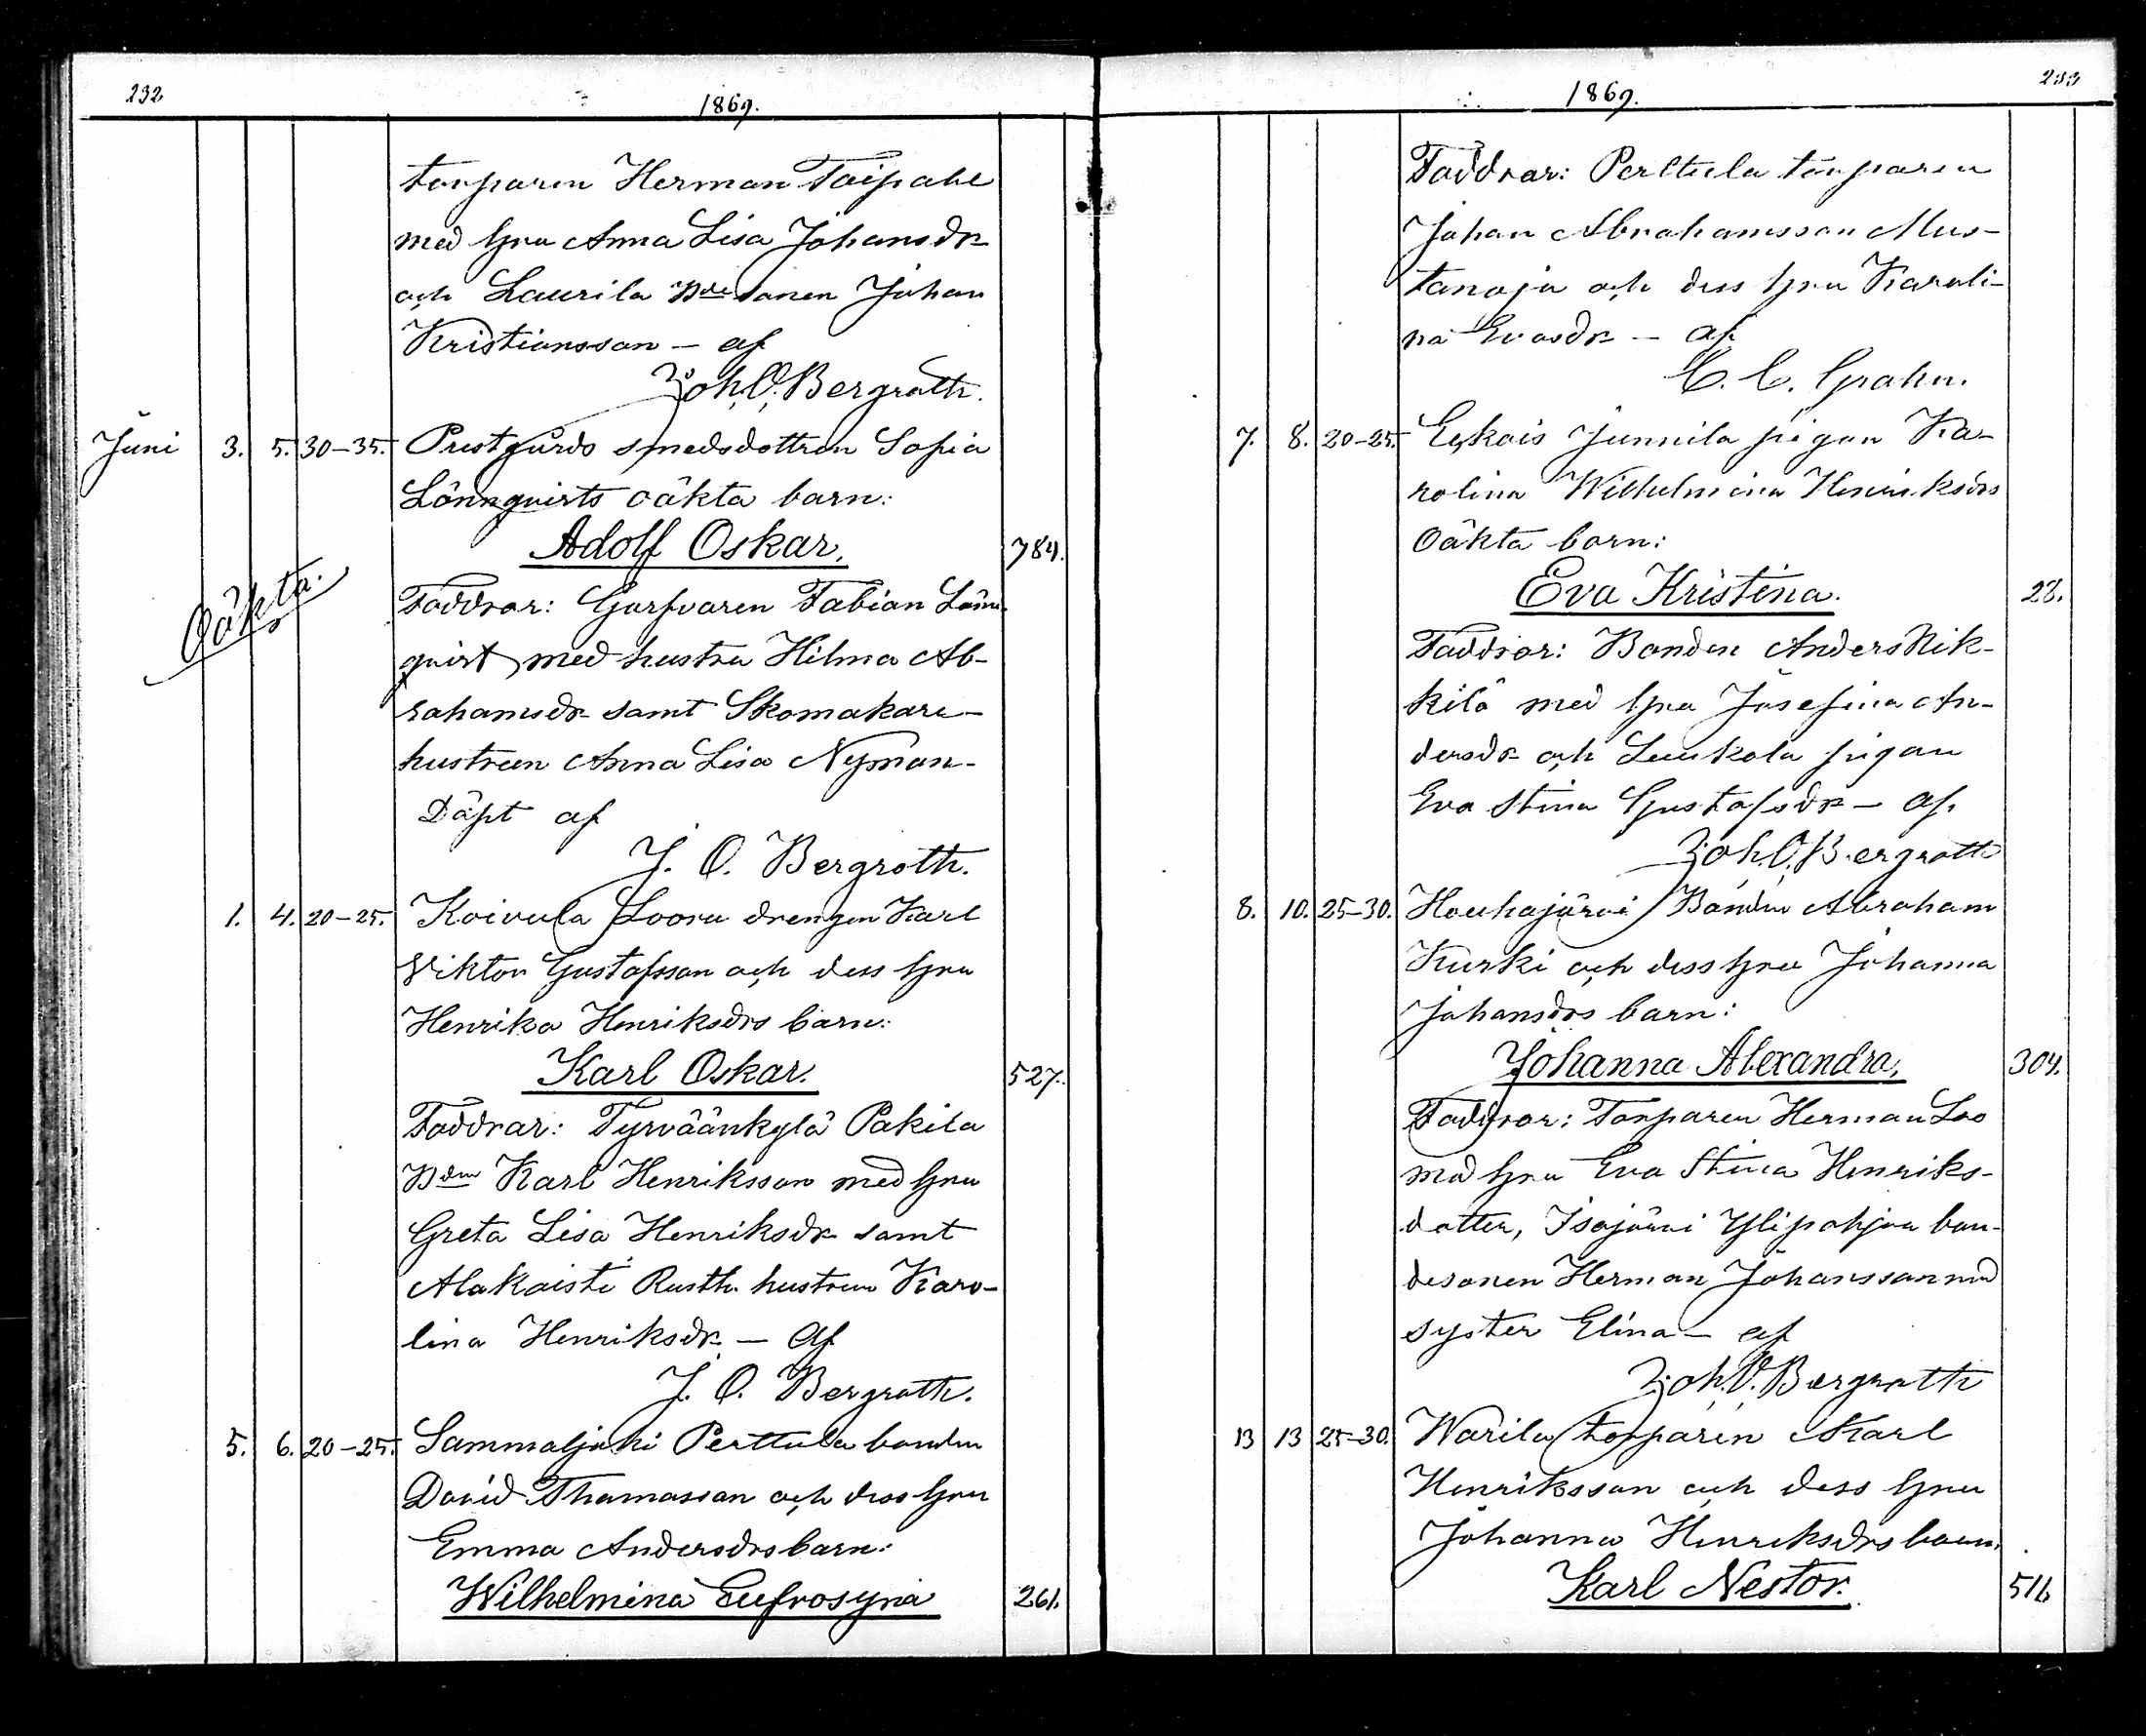 232
1869.
torparen Herman Taipale
med hru Anna Lisa Johansdr
och Laurila Bdesonen Johan
Kristiansson – af
Joh. O. Bergroth.
Juni 3. 5. 30–35. Prestgårds smedsdottren Sofia
Lönnqvists oäkta barn:
Adolf Oskar. 784.
Oäkta.
Faddrar: Garfvaren Fabian Lönn-
qvist med hustru Hilma Ab-
rahamsdr samt Skomakare-
hustrun Anna Lisa Nyman-
Döpt af
J. O. Bergroth.
1. 4. 20–25. Koivula Looru drengen Karl
Viktor Gustafsson och dess hru
Henrika Henriksdrs barn:
Karl Oskar. 527.
Faddrar: Tyrväänkylä Pakila
Bdn Karl Henriksson med hru
Greta Lisa Henriksdr samt
Alakaisti Rusth. hustrun Karo-
lina Henriksdr – af
J. O. Bergroth.
5. 6. 20–25. Sammaljoki Perttula bonden
David Thomasson och dess hru
Emma Andersdrs barn:
Wilhelmina Eufrosyna 261.
233
1869.
Faddrar: Perttula torparen
Johan Abrahamsson Mus-
tanoja och dess hru Karoli-
na Evasdr – af
C. C. Grahn.
7. 8. 20–25. Junnila pigan Ka-
rolina Wilhelmina Henriksdrs
Oäkta barn:
Eva Kristina. 28.
Faddrar: Bonden Anders Nik-
kilä med hru Josefina An-
dersdr och Luukola pigan
Eva Stina Gustafsdr – af
Joh. O. Bergroth
8. 10. 25–30. Houhajärvi Bonden Abraham
Kurki och dess hru Johanna
Johansdrs barn:
Johanna Alexandra. 304.
Faddrar: Torparen Herman Loo
med hru Eva Stina Henriks-
dotter, Isojärvi Ylipohjan bon-
desonen Herman Johansson med
syster Elina – af
Joh. O. Bergroth
13 13 25–30. Warila torparen Karl
Henriksson och dess hru
Johanna Henriksdrs barn:
Karl Nestor. 516